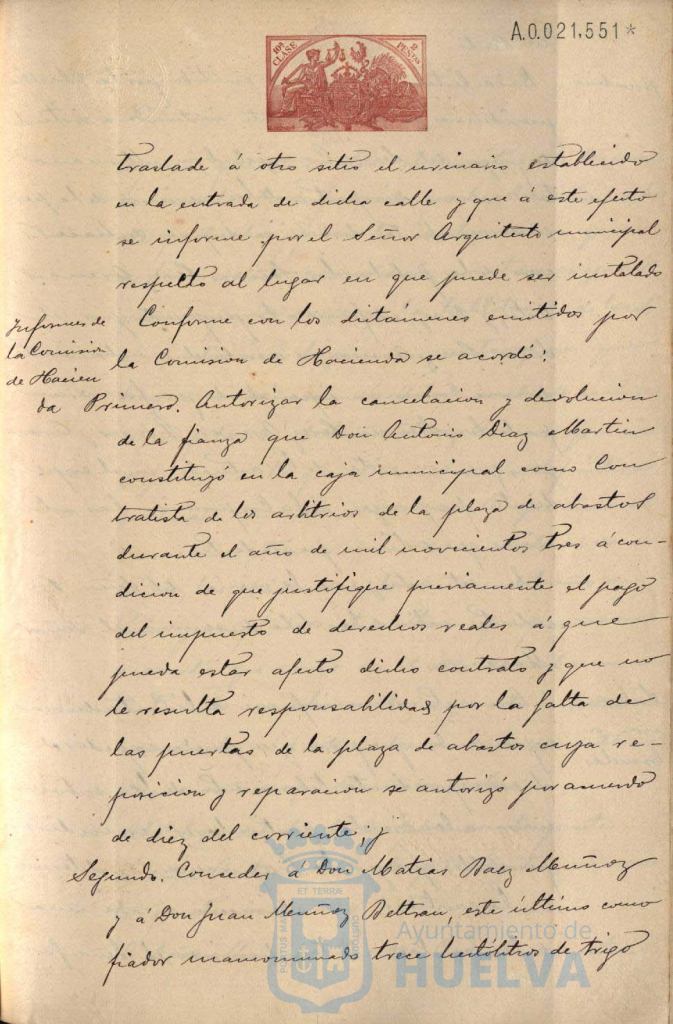 A.0.021,551*
10ª CLASE
2 PESETAS
traslade á otro sitio el urinario establecido
en la entrada de dicha calle y que á este efecto
se informe por el Señor Arquitecto municipal
respecto al lugar en que puede ser instalado
Informes de
la Comision
de Hacien
da
Conforme con los dictámenes emitidos por
la Comision de Hacienda se acordó:
Primero. Autorizar la cancelacion y devolucion
de la fianza que Don Antonio Diaz Martin
constituyó en la caja municipal como Con
tratista de los arbitrios de la plaza de abastos
durante el año de mil novecientos tres á con-
dicion de que justifique préviamente el pago
del impuesto de derechos reales á que
pueda estar afecto dicho contrato y que no
le resulta responsabilidad por la falta de
las puertas de la plaza de abastos cuya re-
posicion y reparacion se autorizó por acuerdo
de diez del corriente; y
Segundo. Conceder á Don Matias Baez Muñoz
y á Don Juan Muñoz Beltran, este último como
fiador mancomunado trece hectólitros de trigo
ET TERRÆ
PORTUS MARIS
CUSTODIA
Ayuntamiento de
HUELVA